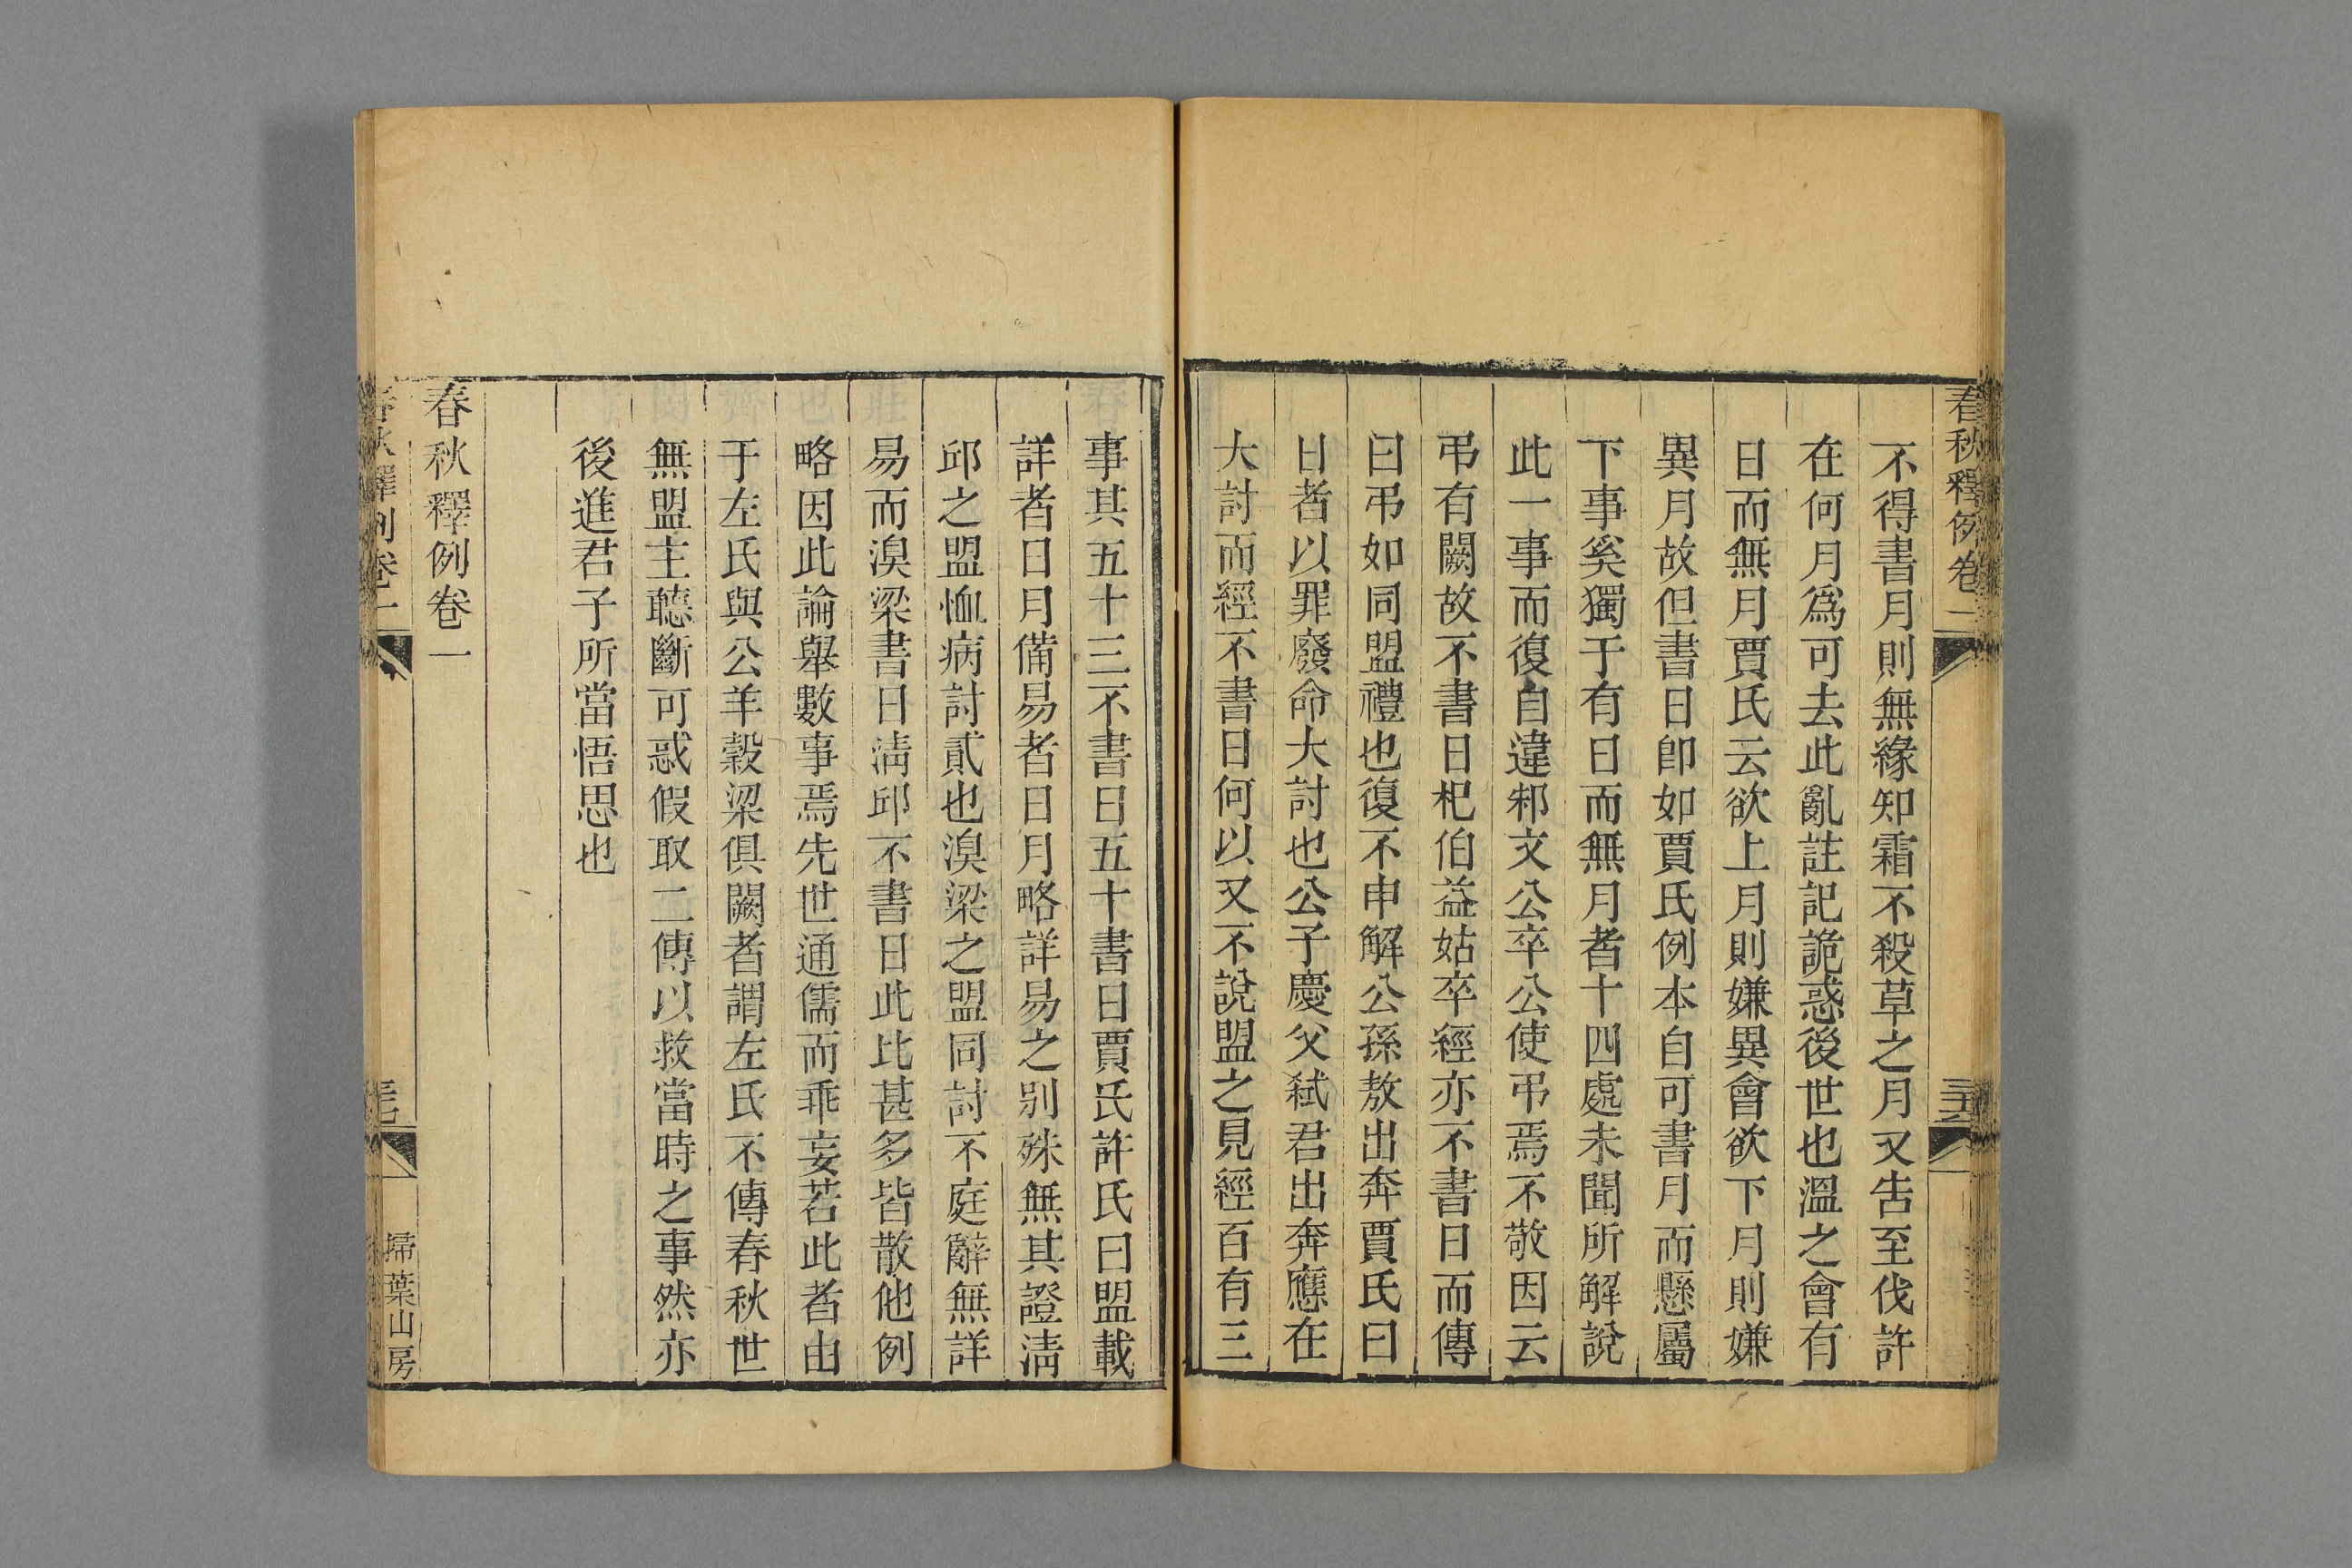 春秋釋例卷一
不得書月則無緣知霜不殺草之月又告至伐許
在何月爲可去此亂註記詭惑後世也溫之會有
日而無月賈氏云欲上月則嫌異會欲下月則嫌
異月故但書日卽如賈氏例本自可書月而懸屬
下事奚獨于有日而無月者十四處未聞所解說
此一事而復自違邾文公卒公使弔焉不敬因云
弔有闕故不書日杞伯益姑卒經亦不書日而傳
曰弔如同盟禮也復不申解公孫敖出奔賈氏曰
日者以罪廢命大討也公子慶父弒君出奔應在
大討而經不書日何以又不說盟之見經百有三
事其五十三不書日五十書日賈氏許氏曰盟載
詳者日月備易者日月略詳易之別殊無其證淸
邱之盟恤病討貳也湨梁之盟同討不庭辭無詳
易而湨梁書日淸邱不書日此比甚多皆散他例
略因此論舉數事焉先世通儒而乖妄若此者由
于左氏與公羊穀梁俱闕者謂左氏不傳春秋世
無盟主聽斷可惑假取二傳以救當時之事然亦
後進君子所當悟思也
春秋釋例卷一
春秋釋例卷一
掃葉山房